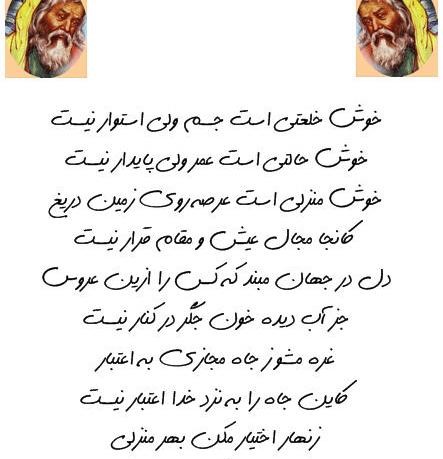 خوش خلعتی است جسم ولی استوار نیست
خوش حالتی است عمر ولی پایدار نیست
خوش منزلی است عرصه روی زمین دریغ
کانجا مجال عیش و مقام قرار نیست
دل در جهان مبند که کس را ازین عروس
جز آب دیده خون جگر در کنار نیست
غره مشو ز جاه مجازی به اعتبار
کاین جاه را به نزد خدا اعتبار نیست
زنهار اختیار مکن بهر منزلی